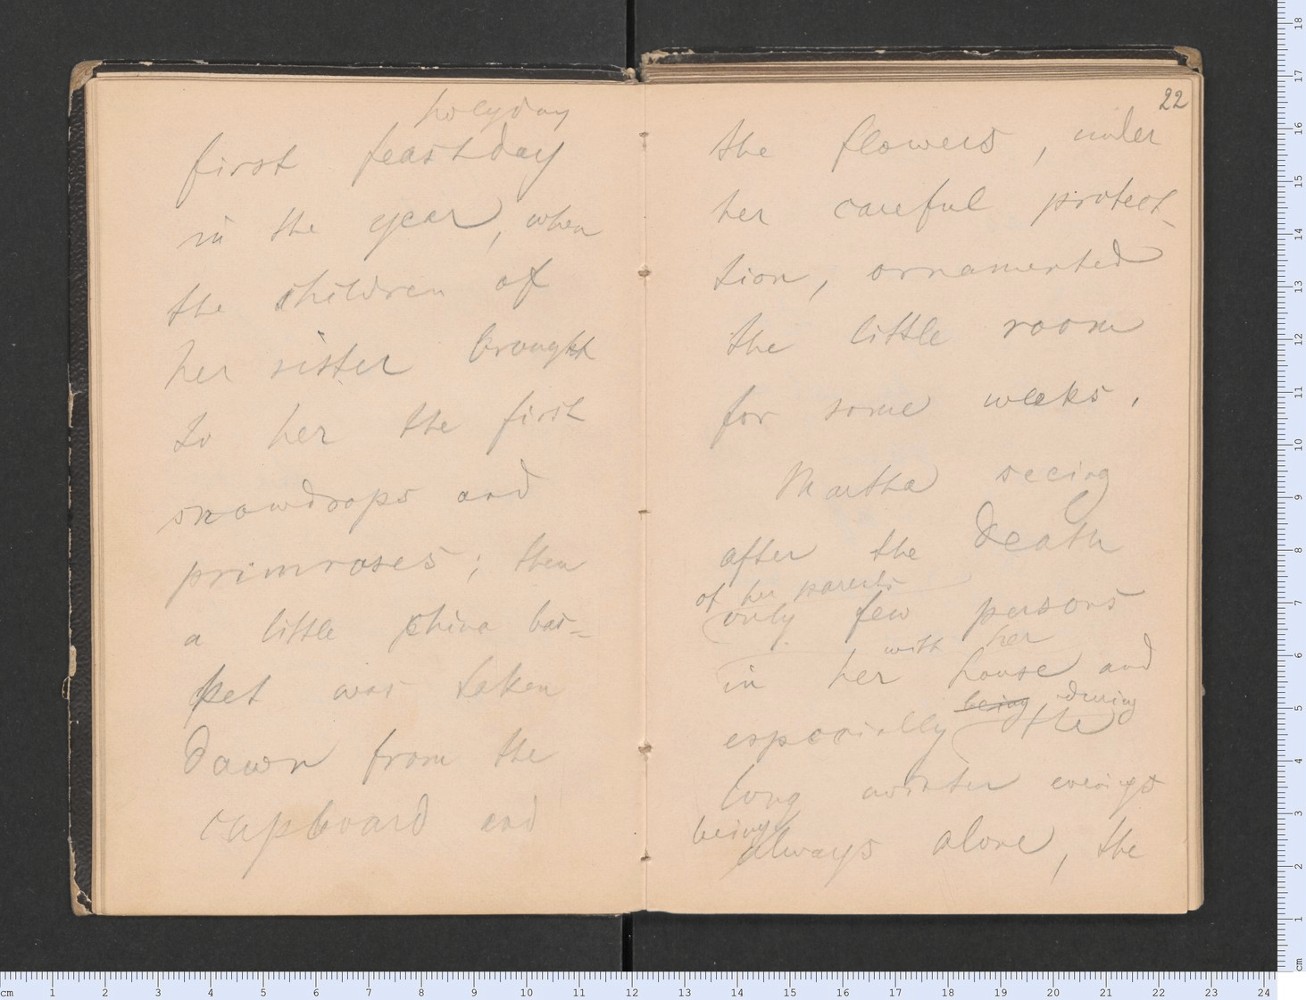 holyday
first feastday
in the year, when
the children of
her sister brought
to her the first
snowdraps and
primroses; then
a little china bas=
ket was taken
dawn from the
cupboard and
22
the flowers, under
her careful protect-
tion, ornamented
the little room
for some weeks.
Martha seeing
after the death
of her parents
only few persons
with her
in her house and
being during
especially the
long winter evenings
being
always alone, the